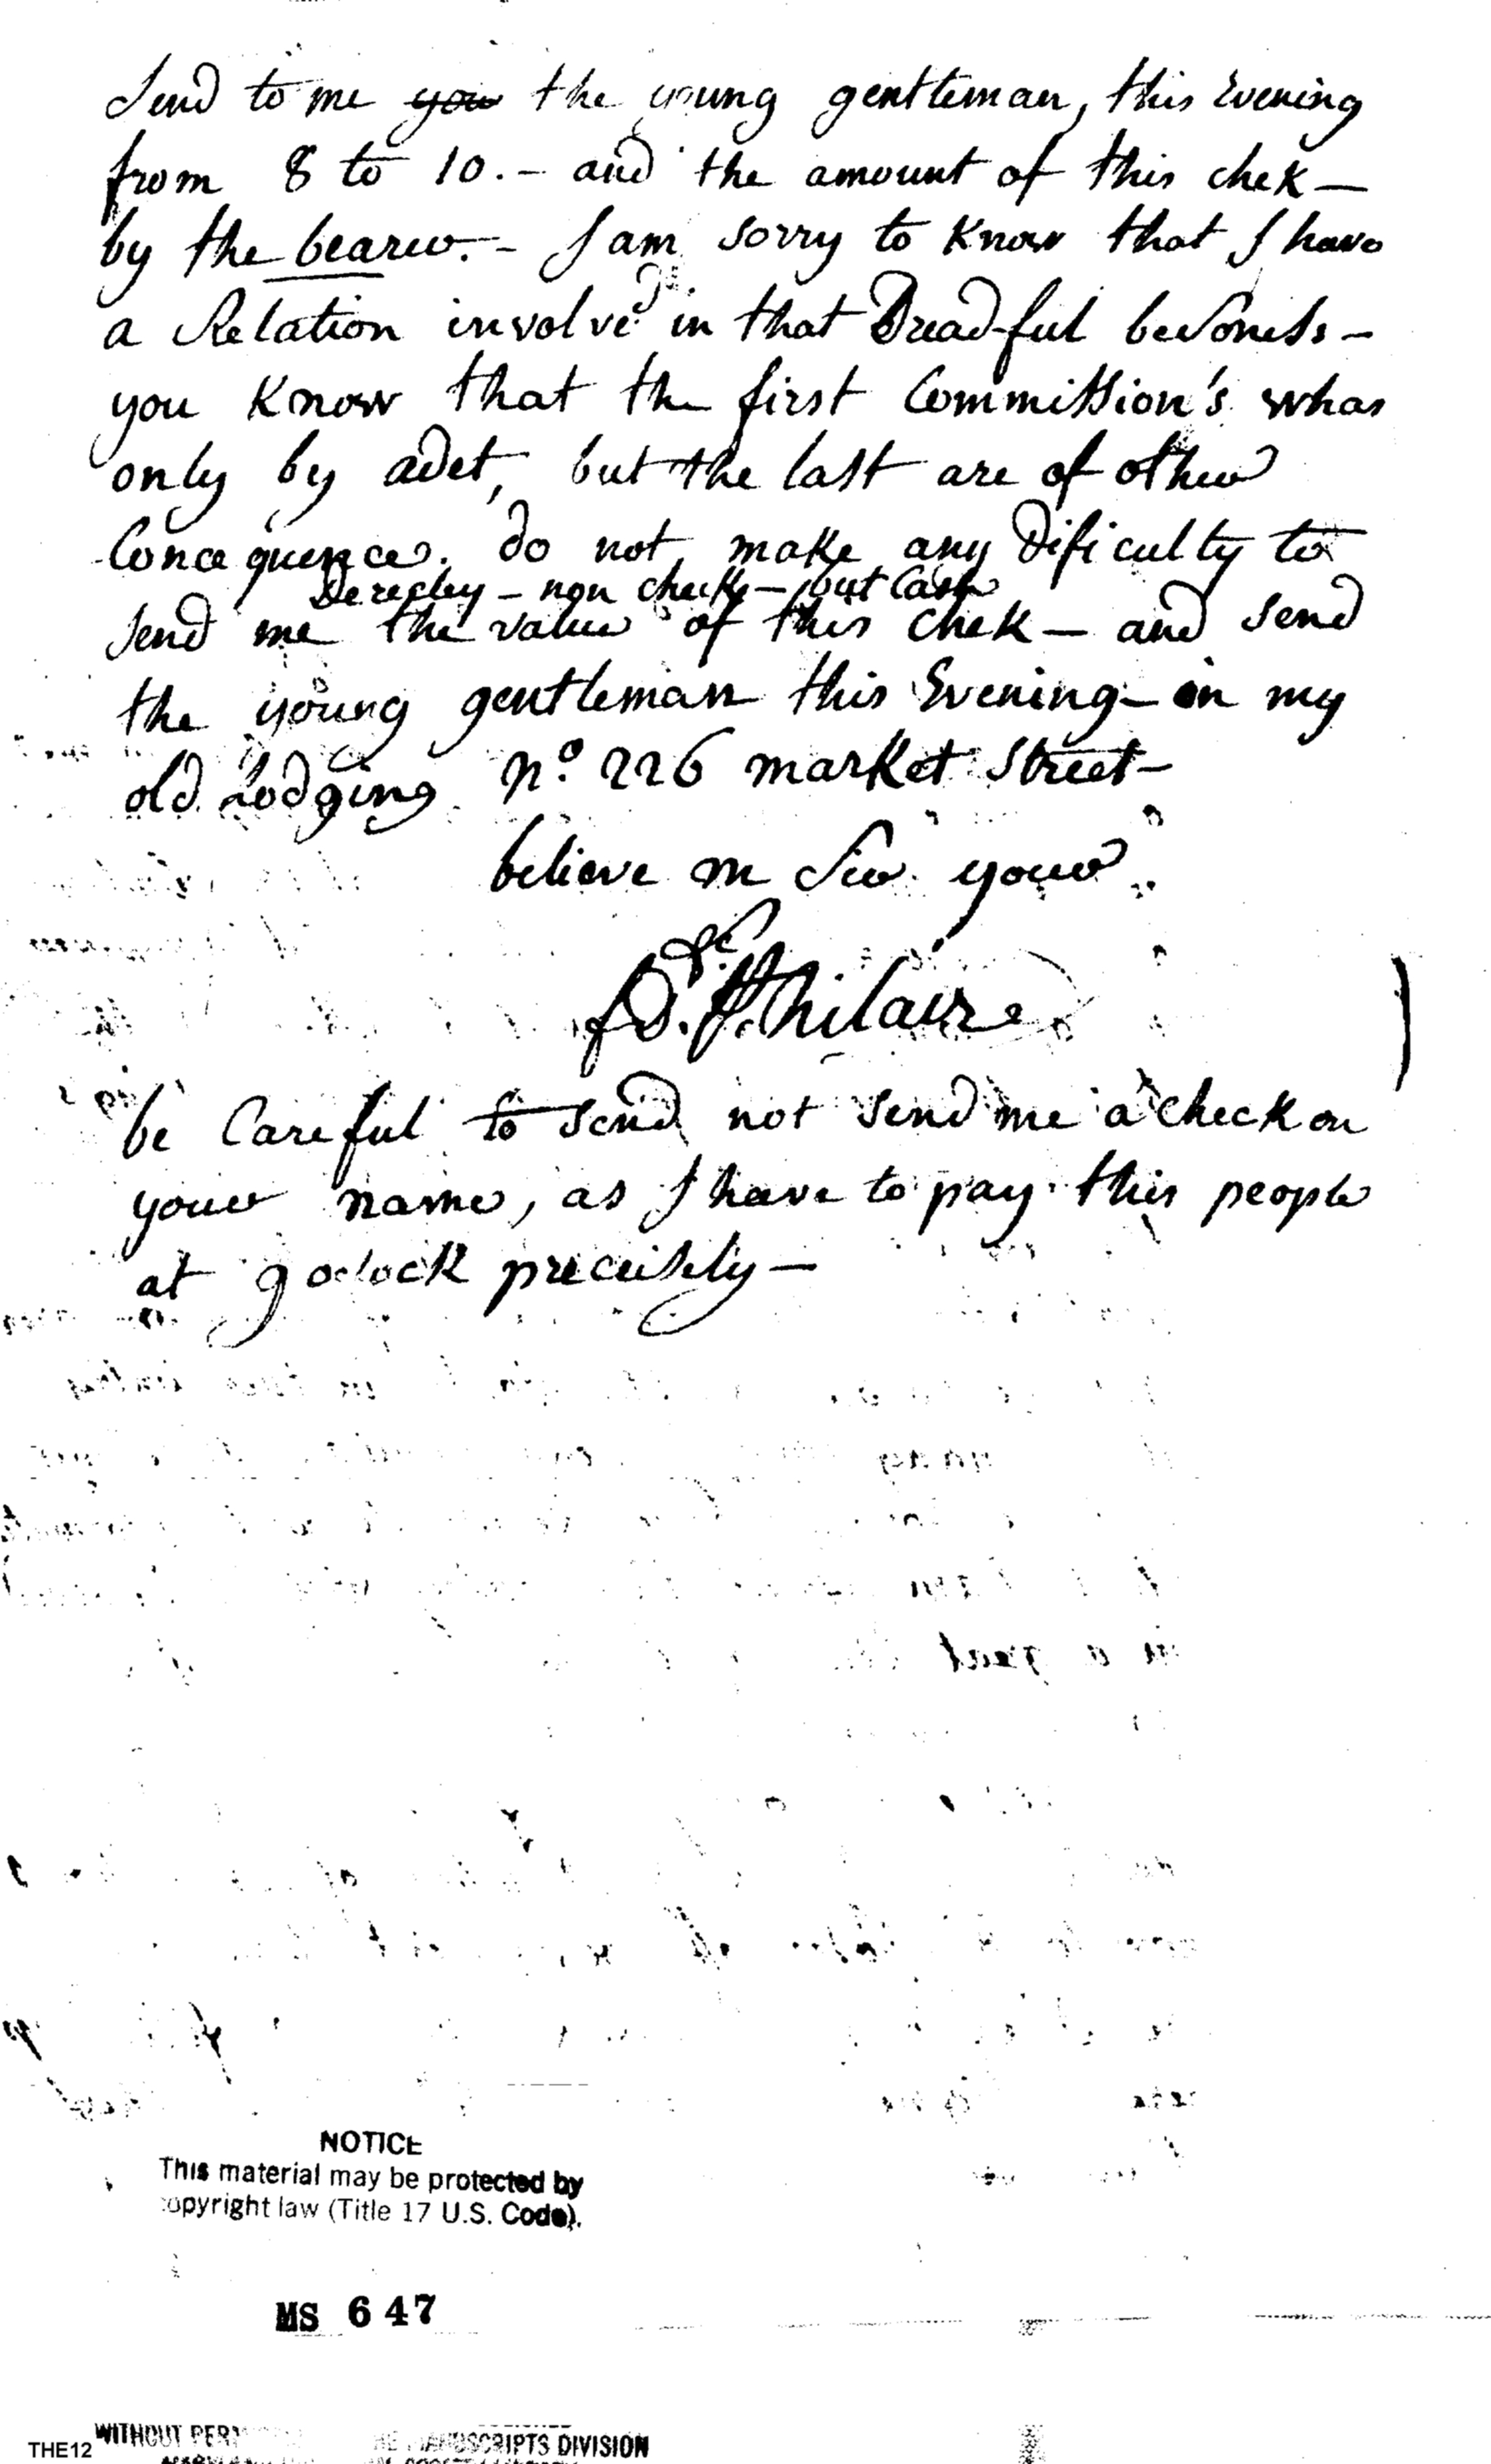 Send to me you the young gentleman, this Evening
from 8 to 10.- and the amount of this chek-
by the bearer.- I am sorry to Know that I have
a Relation involved in that Dreadful
you Know that the first Commission's whas
only by adet, but the last are of other
Concequence. do not make any Dificulty to
non check - but Cash
Send me the value of this Chek - and Send
the young gentleman this Evening - in my
old Lodging. No. 226 market Street -
believe m Sir your
St. hilaire
be Careful to Send not Send me a check on
your name, as I have to pay this people
at 9 oclock preciisely -
NOTICE
This material may be protected by
copyright law (Title 17 U.S. Code).
MS 647
THE12
WITHOUT
MANUSCRIPTS DIVISION